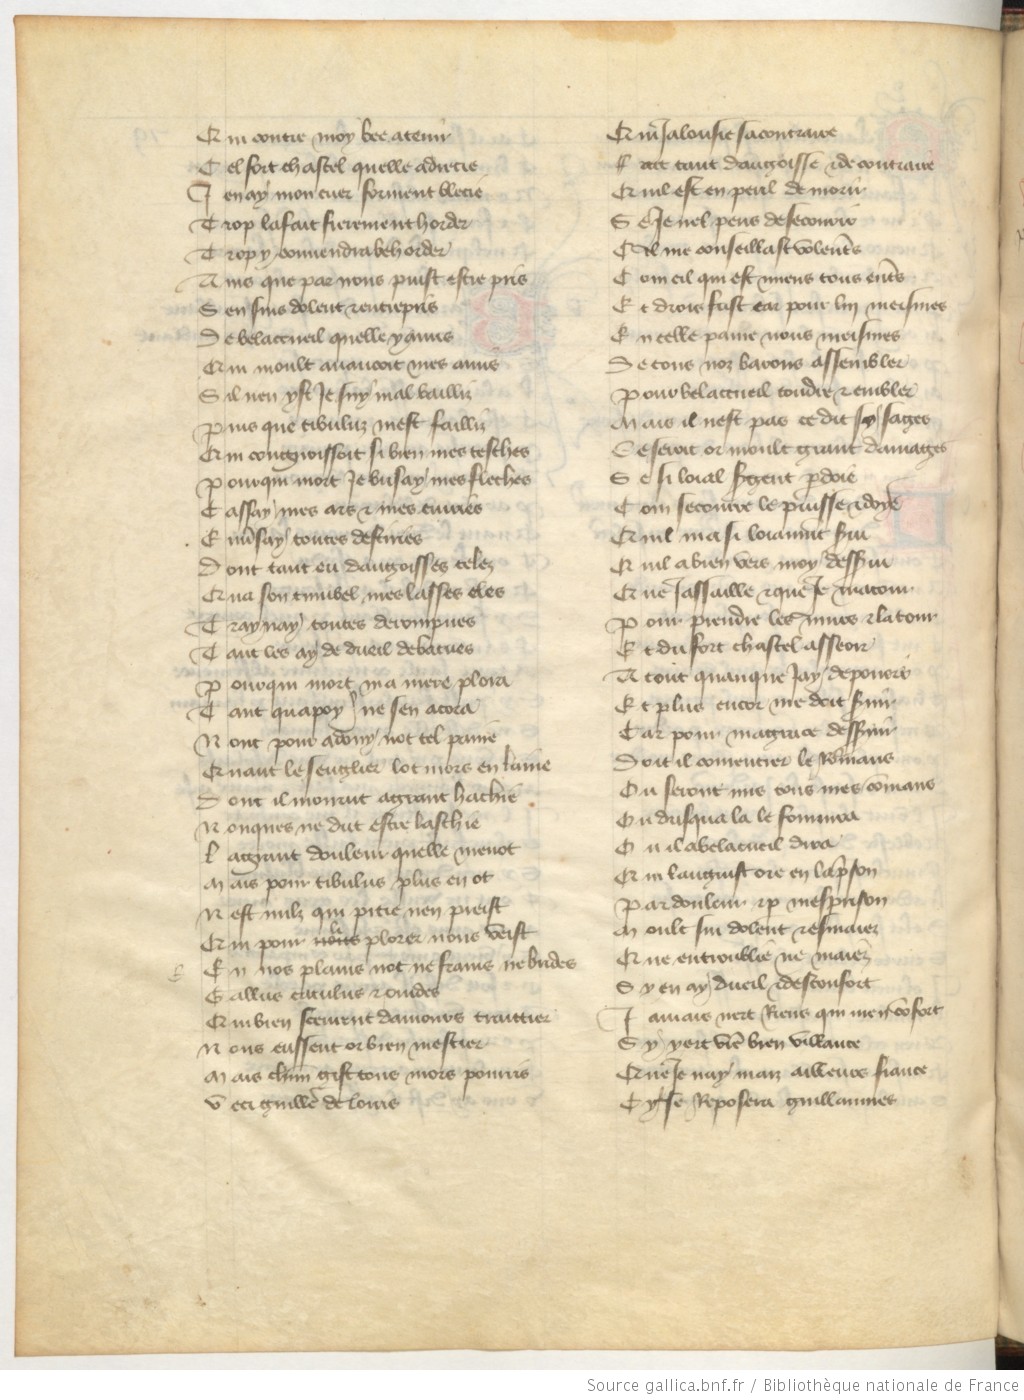 Qui contre moy bee a tenir
Cel fort chastel quelle a drecie
Jen ay mon cuer forment blecie
Trop la fait fierement horder
Trop y convendra behorder
Ains que par nous puist estre pris
Sen suis dolent & entrepris
De belacueil quelle y a mis
Qui moult avancoit mes amis
Sil nen yst Je suy mal bailliz
Puis que tibuluz mest failliz
Qui congnoissoit si bien mes tesches
Pour qui mort Je brisay mes fleches
Cassay mes ars & mes cuiries
Dont tant eu dangoisses telez
Traynay toutes derompues
Tant les ay de dueil debatues
Pour qui mort ma mere plora
Tant qua poy ne sen acora
Not pour adony not tel paine
Quant le senglier lot mors en laine
Dont il mourut a grant hachie
Nonques ne dut estre laschie
La grant douleur quelle menot
Mais pour tibulus plus en ot
Nest nulz qui pitie nen preist
Qui pour plorer nous veist
En nos plains not ne frains ne brides
Gallus catulus & ovides
Qui bien sceurent damours traittier
Nous eussent or bien mestier
Mais chun gist tous mors pourris
Veci guille de lorris
Qui Jalousie sa contraire
Fait tant dangoisse & de contraire
Quil est en peril de morir
Se Je nel pens de secourir
Cil me conseillast volents
Com cil qui est miens tous ents
Et drois fust car pour luy meismes
En celle paine nous meismes
De tous noz barons assembler
Pour belacueil toudre & embler
Mais il nest pas ce dit sy sages
Ce seroit or moult grant damages
Se si loial sgent pdoie
Com secourre le puisse & doye
Quil ma si loiaumt sui
Quil a bien vers moy dessui
Que Jassaille & que Je matour
Pour prendre les murs & la tour
Et du fort chastel asseoir
A tout quanque Jay de povoir
Et plus encor me doit suir
Car pour ma grace dessuir
Doit il comencier le Romans
Ou seront mis tous mes comans
Et Jusqua la le fournira
Ou il a belacueil dira
Qui languist ore en la pson
Par douleur & p mesprison
Moult sui dolent & esmaiez
Que entroublie ne maiez
Sy en ay dueil & desconfort
Jamais nert Riens qui men cofort
Que Je nay maiz ailleurs fiance
Cy se Reposera guillaumes